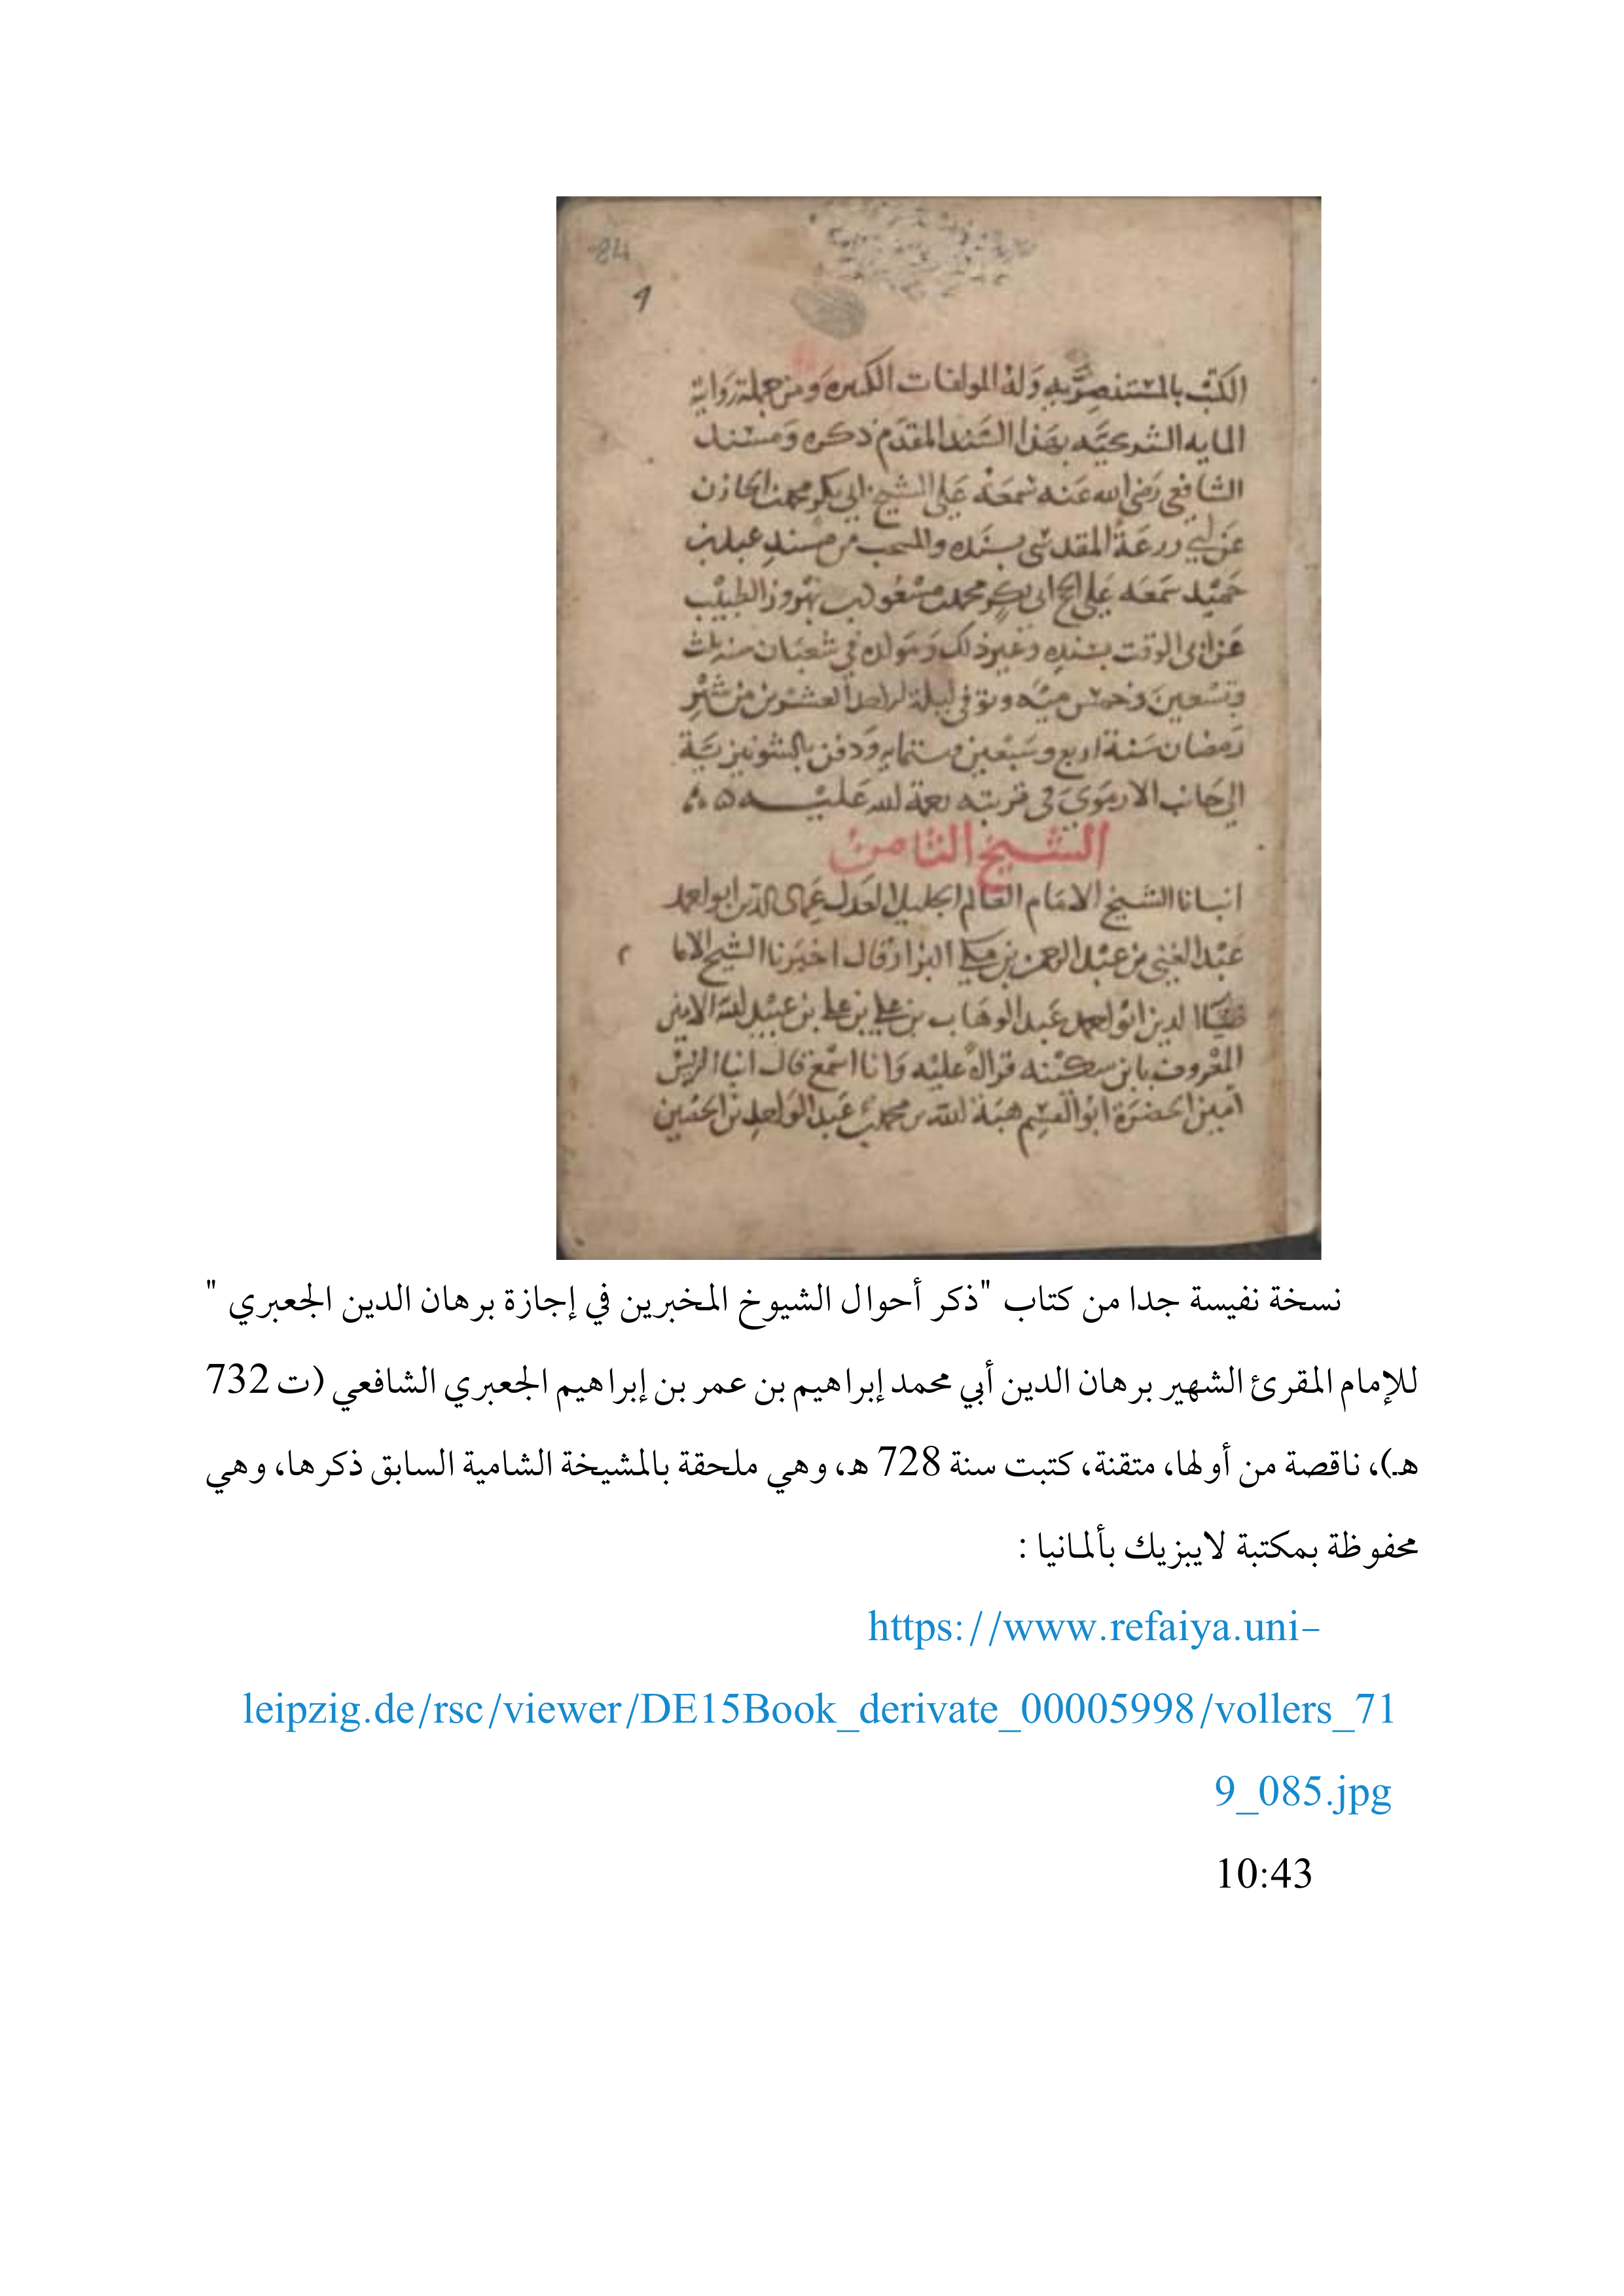 84
الكتب بالمستنصرية وله المولفات الكثيره ومن جملة رواية
المايه الشريحيه بهذا السند المقدم ذكره ومسند
الشافعي رضي الله عنه سمعه على الشيخ ابي بكر محمد الخازن
عن ابي زرعة المقدسي بسنده والمنتخب من مسند عبد بن
حميد سمعه على ابي بكر محمد بن مسعود بن بهروز الطبيب
عن ابي الوقت بسنده وغير ذلك ومولده في شعبان سنة ثلث
وتسعين وخمس ميه وتوفي ليلة الاحد العشرين من شهر
رمضان سنة اربع وسبعين وستمايه ودفن بالشونيزية
الى جانب الارموي في تربته رحمة الله عليه
الشيخ الثامن
انبانا الشيخ الامام العالم الجليل العدل عماد الدين ابو احمد
عبد الغني بن عبد الرحمن بن مكي البزاز قال اخبرنا الشيخ الاما م
ضيا الدين ابو احمد عبد الوهاب بن علي بن علي بن عبيد الله الامين
المعروف بابن سكينه قراة عليه وانا اسمع قال انبا الريس
امين الحضرة ابو القسم هبة الله بن محمد بن عبد الواحد بن الحصين
نسخة نفيسة جدا من كتاب "ذكر أحوال الشيوخ المخبرين في إجازة برهان الدين الجعبري "
للإمام المقرئ الشهير برهان الدين أبي محمد إبراهيم بن عمر بن إبراهيم الجعبري الشافعي (ت 732
هـ)، ناقصة من أولها، متقنة، كتبت سنة 728 هـ، وهي ملحقة بالمشيخة الشامية السابق ذكرها، وهي
محفوظة بمكتبة لايبزيك بألمانيا :
https://www.refaiya.uni-
leipzig.de/rsc/viewer/DE15Book_derivate_00005998/vollers_71
9_085.jpg
10:43